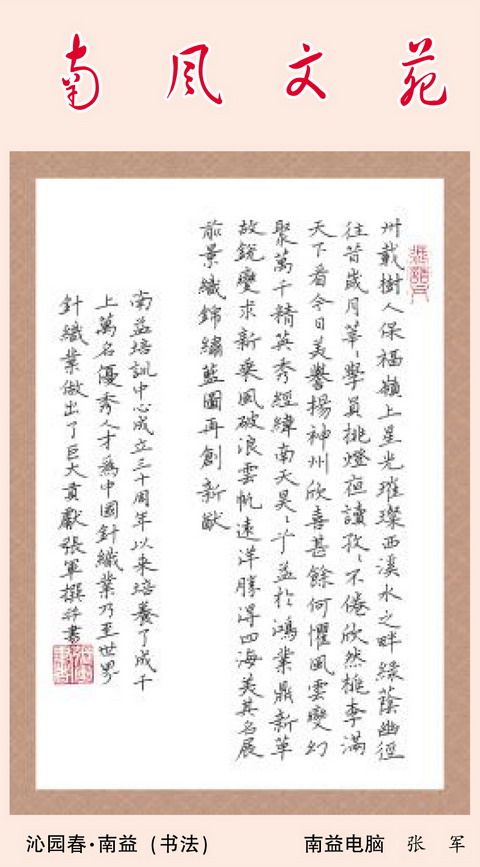 南风文苑
卅載樹人保福嶺上星光璀璨西溪水之畔綠蔭幽徑
往昔歲月葦、學員挑燈夜讀孜、不倦欣然桃李滿
天下看今日美譽揚神州欣喜甚餘何懼風雲變幻
聚萬千精英秀經緯南天昊、于益於鴻業鼎新革
故銳變求新乘風破浪雲帆遠洋勝得四海美其名展
前景織錦繡藍圖再創新猷
南益培訓中心成立三十周年以來培養了成千
上萬名優秀人才為中國針織業乃至世界
針織業做出了巨大貢獻張軍撰并書
沁园春·南益（书法）
南益电脑 张 军